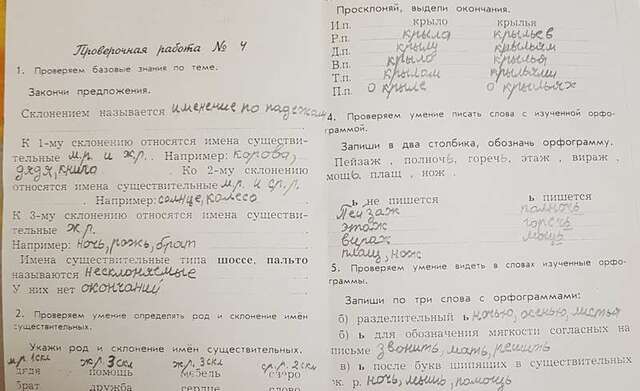 Проверочная работа № 4
1. Проверяем базовые знания по теме.
Закончи предложения.
Склонением называется именение по падежам
К 1-му склонению относятся имена существи-
тельные м.р. и ж.р. . Например: корова,
дядя, книга . Ко 2-му склонению
относятся имена существительные м.р. и ср.р.
. Например: солнце, колесо
К 3-му склонению относятся имена существи-
тельные ж.р.
Например: ночь, рожь, брат
Имена существительные типа шоссе, пальто
называются несклоняемые
У них нет окончаний
2. Проверяем умение определять род и склонение имён
существительных.
Укажи род и склонение имён существительных.
м.р 1скл ж.р. 3скл ж.р. 3скл ср.р. 2скл
дядя помощь мебель
брат дружба сердце слово
Просклоняй, выдели окончания.
И.п. крыло крылья
Р.п. крыла крыльев
Д.п. крылу крыльям
В.п. крыло крылья
Т.п. крылом крыльями
П.п. о крыле о крыльях
4. Проверяем умение писать слова с изученной орфо-
граммой.
Запиши в два столбика, обозначь орфограмму.
Пейзаж , полночь, горечь, этаж , вираж ,
мощь, плащ , нож .
ь не пишется ь пишется
Пейзаж полночь
этаж горечь
вираж мощь
плащ, нож
5. Проверяем умение видеть в словах изученные орфо-
граммы.
Запиши по три слова с орфограммами:
б) разделительный ь ночью, осенью, листья
б) ь для обозначения мягкости согласных на
письме звонить, мать, решить
в) ь после букв шипящих в существительных
ж. р. ночь, мышь, помощь